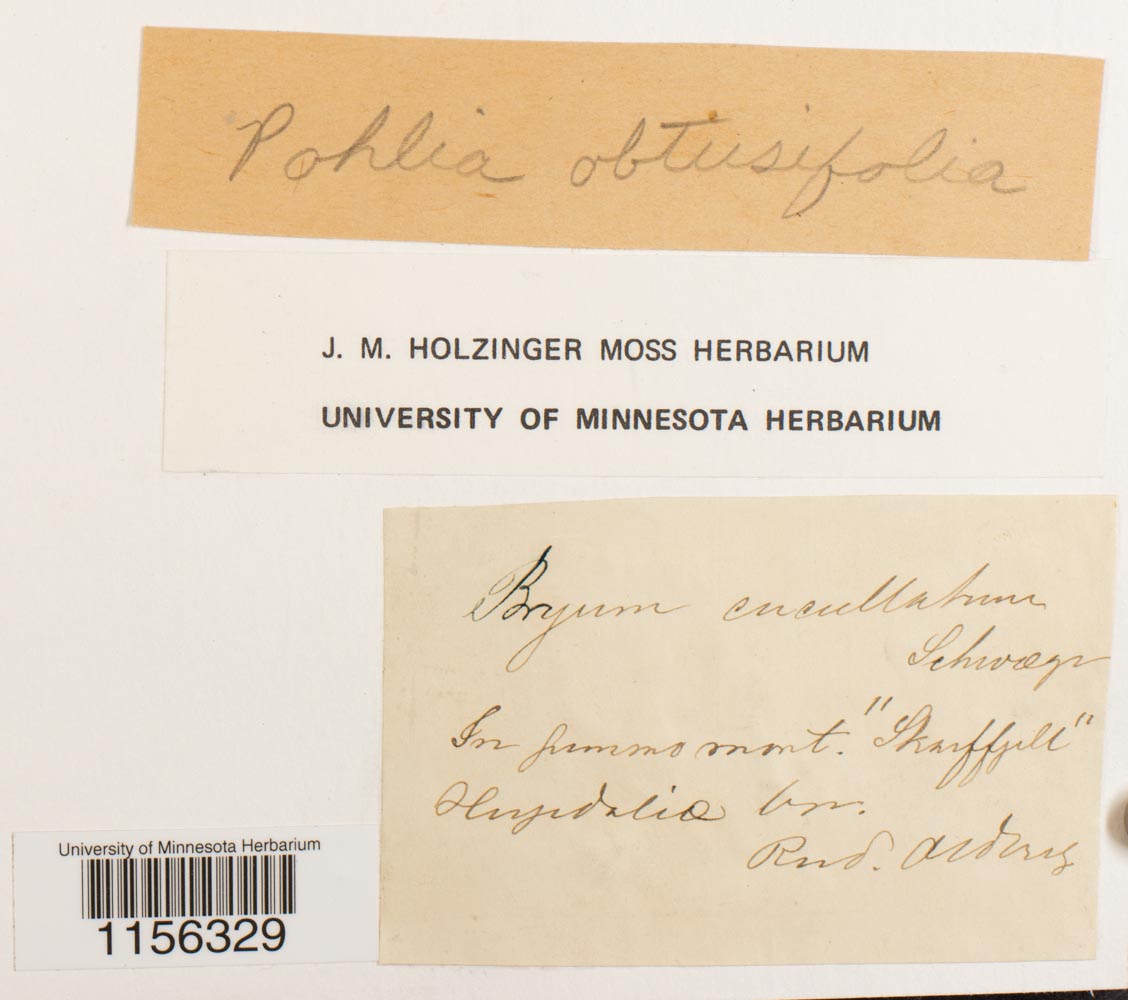 Pohlia obtusifolia
J. M. HOLZINGER MOSS HERBARIUM
UNIVERSITY OF MINNESOTA HERBARIUM
Bryum cucullatum
Schwægr
In summo mont. "Skarffjell"
lin.
Rud.
University of Minnesota Herbarium
1156329